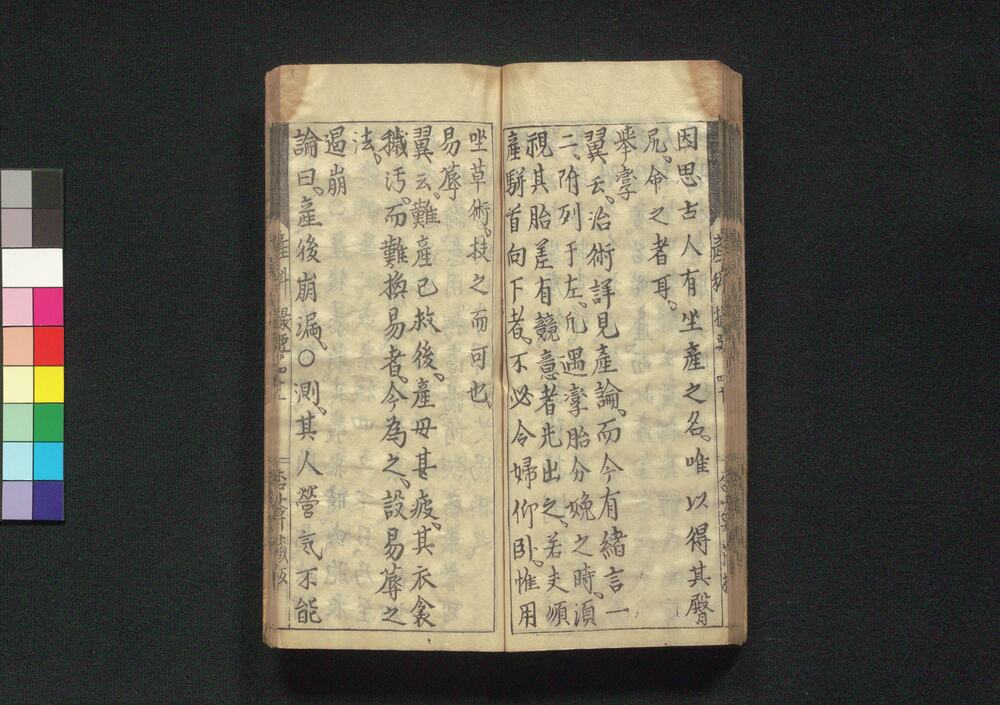 因思古人有坐產之名。唯以得其臀
尻、命之者耳。
舉孿
翼云、治術詳見產論、而今有緒言一
二、附列于左、凡遇孿胎分娩之時、須
視其胎差有競意者先出之、若夫順
產駢首向下者、不必令婦仰卧、惟用
坐草術、技之而可也。
易蓐
翼云、難產已救後、產母甚疲、其衣衾
穢汚、而難換易者、今為之、設易蓐之
法、
遏崩
論曰、產後崩漏、〇測其人營気不能